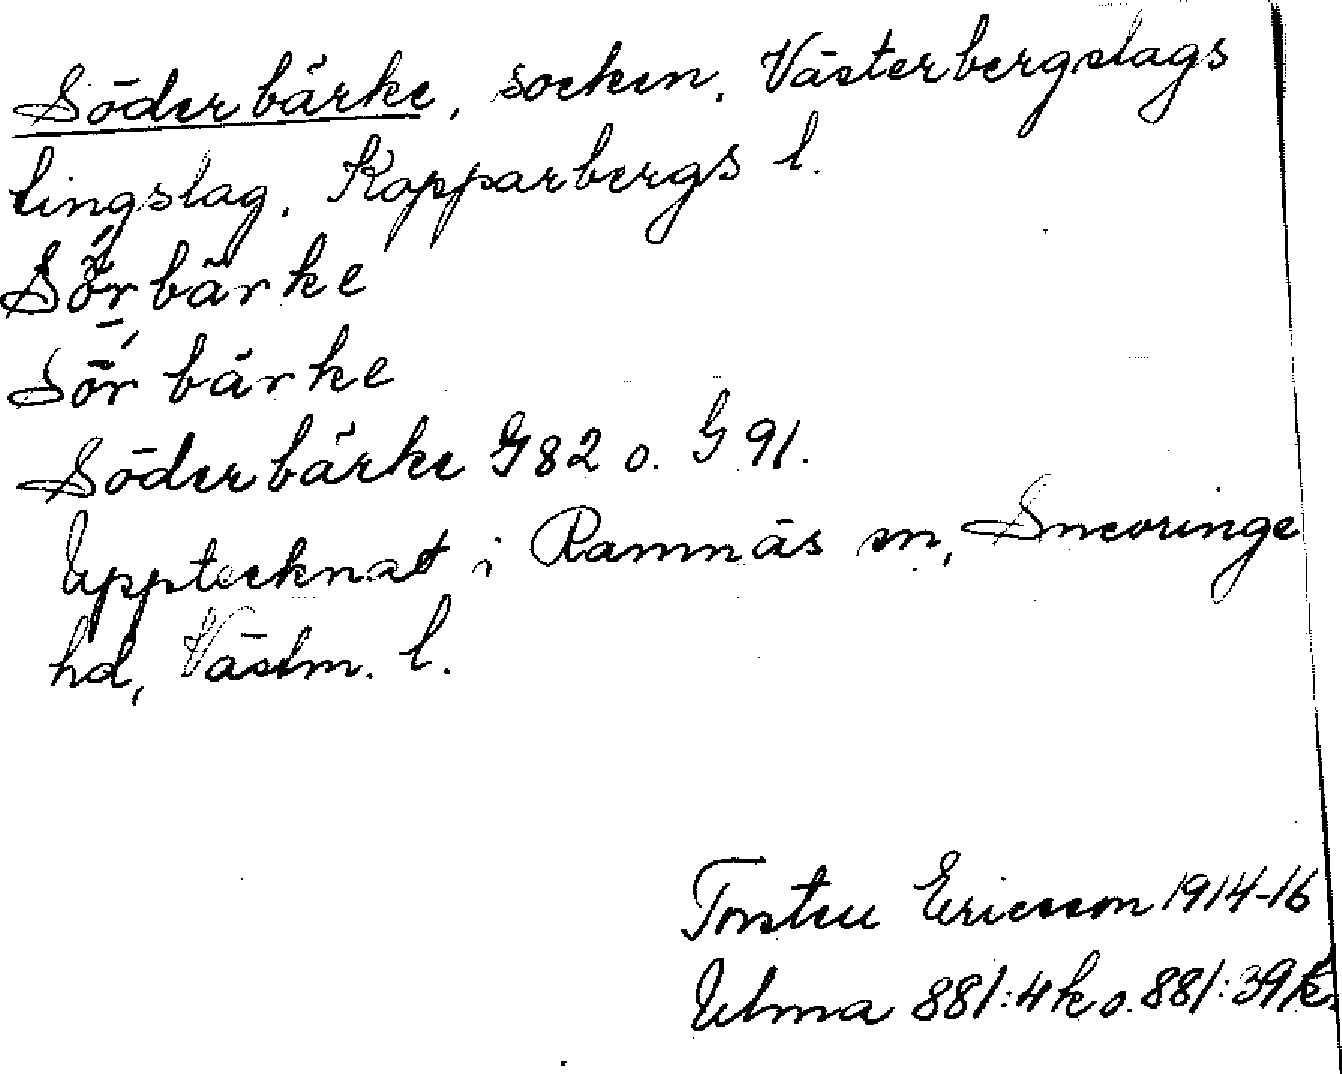 Söderbärke, socken, Västerbergslags
tingslag, Kopparbergs l.
Sör,bärke
Sör bärke
Söderbärke G82 o. G 91.
Upptecknat i Ramnäs sn, Snevringe
hd, Västm. l.
Torsten Ericsson 1914-16
Ulma 881:4k o. 881:39k.